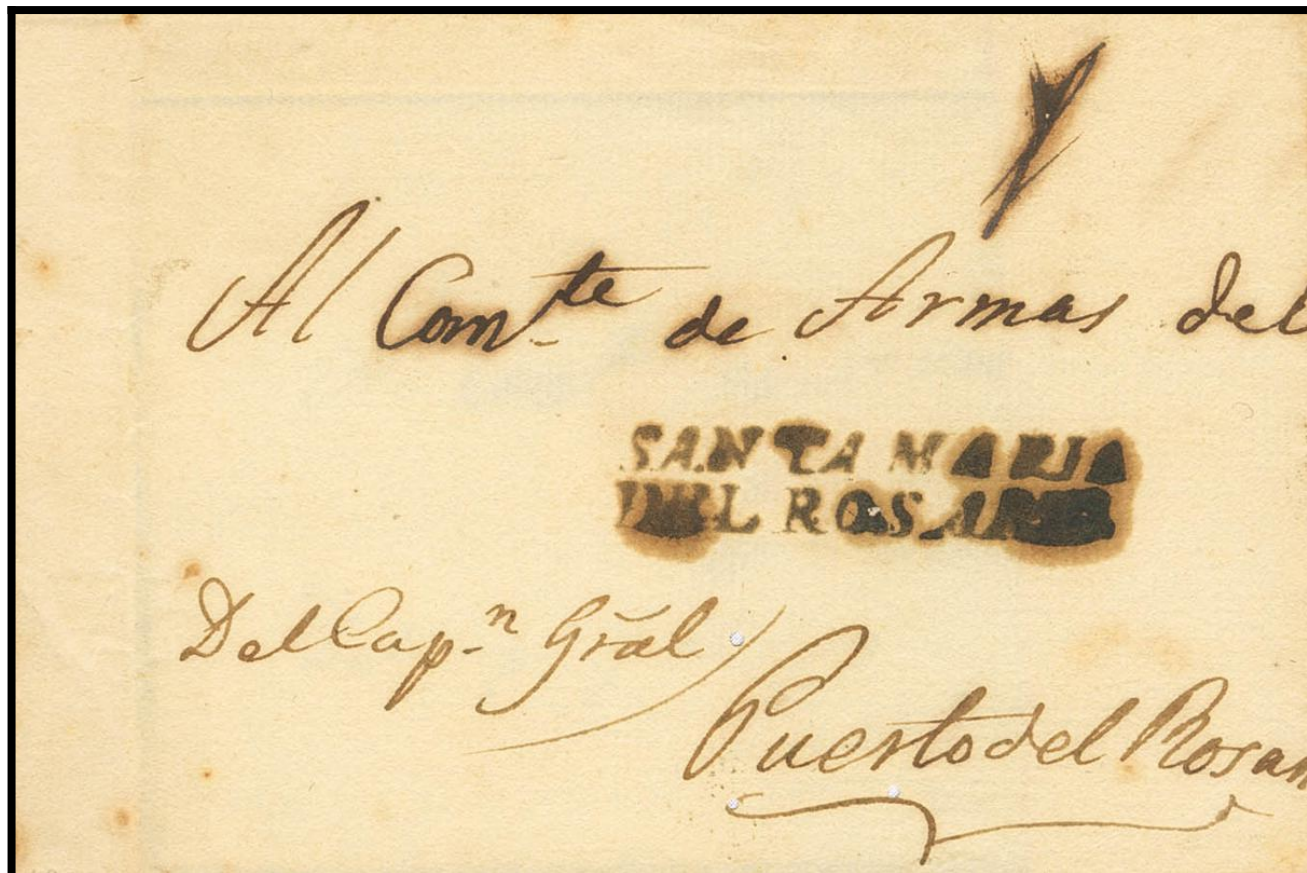 Al Comte de Armas del
SANTA MARIA
DEL ROSARIO
Del Capn Gral
Puerto del Rosar